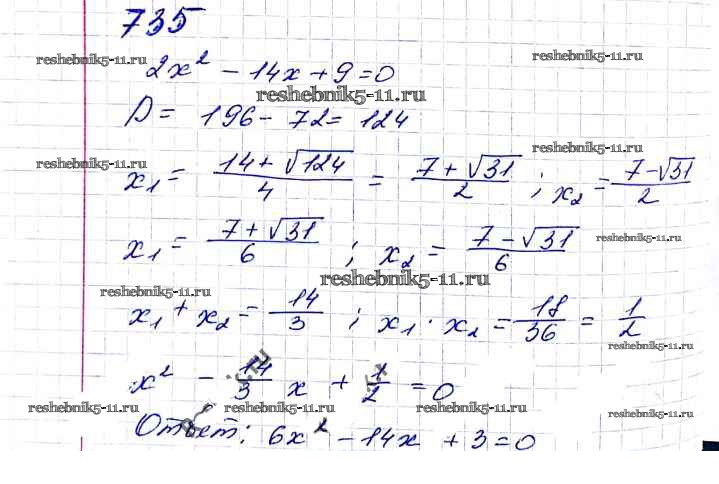 735
reshebnik5-11.ru reshebnik5-11.ru
2x² - 14x + 9 = 0
reshebnik5-11.ru
D = 196 - 72 = 124
reshebnik5-11.ru reshebnik5-11.ru
x₁ = (14 + √124)/4 = (7 + √31)/2 ; x₂ = (7 - √31)/2
x₁ = (7 + √31)/6 ; x₂ = (7 - √31)/6
reshebnik5-11.ru
reshebnik5-11.ru
reshebnik5-11.ru
x₁ + x₂ = 14/3 ; x₁ · x₂ = 18/36 = 1/2
reshebnik5-11.ru reshebnik5-11.ru
x² - 14/3 x + 1/2 = 0
reshebnik5-11.ru reshebnik5-11.ru reshebnik5-11.ru
Ответ: 6x² - 14x + 3 = 0